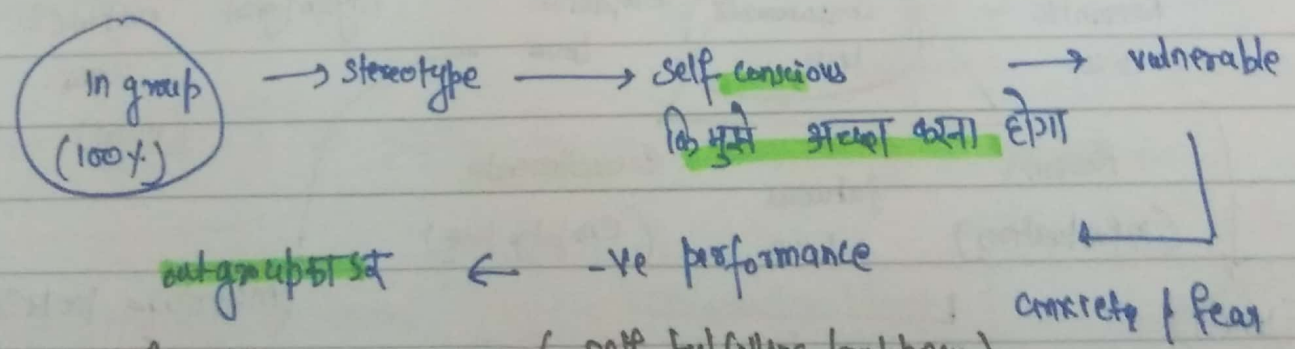 In group → stereotype → self conscious → vulnerable
(100%) कि मुझे अच्छा करना होगा
outgroup का डर ← -ve performance ←
anxiety / fear